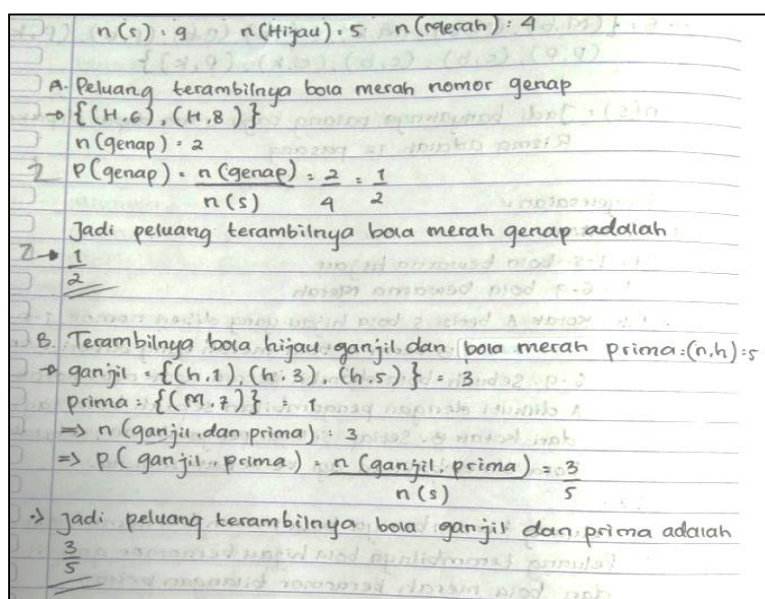 n(s) : 9 n(Hijau) : 5 n(merah) : 4
A. Peluang terambilnya bola merah nomor genap
→ {(H.6), (H.8)}
n(genap) = 2
P(genap) = n(genap) / n(s) = 2/4 = 1/2
Jadi peluang terambilnya bola merah genap adalah
→ 1/2
B. Terambilnya bola hijau ganjil dan bola merah prima = (n,h) = 5
→ ganjil = {(h.1), (h.3), (h.5)} = 3
prima = {(M.7)} = 1
=> n(ganjil dan prima) = 3
=> P(ganjil, prima) = n(ganjil, prima) / n(s) = 3/5
·> Jadi peluang terambilnya bola ganjil dan prima adalah
3/5